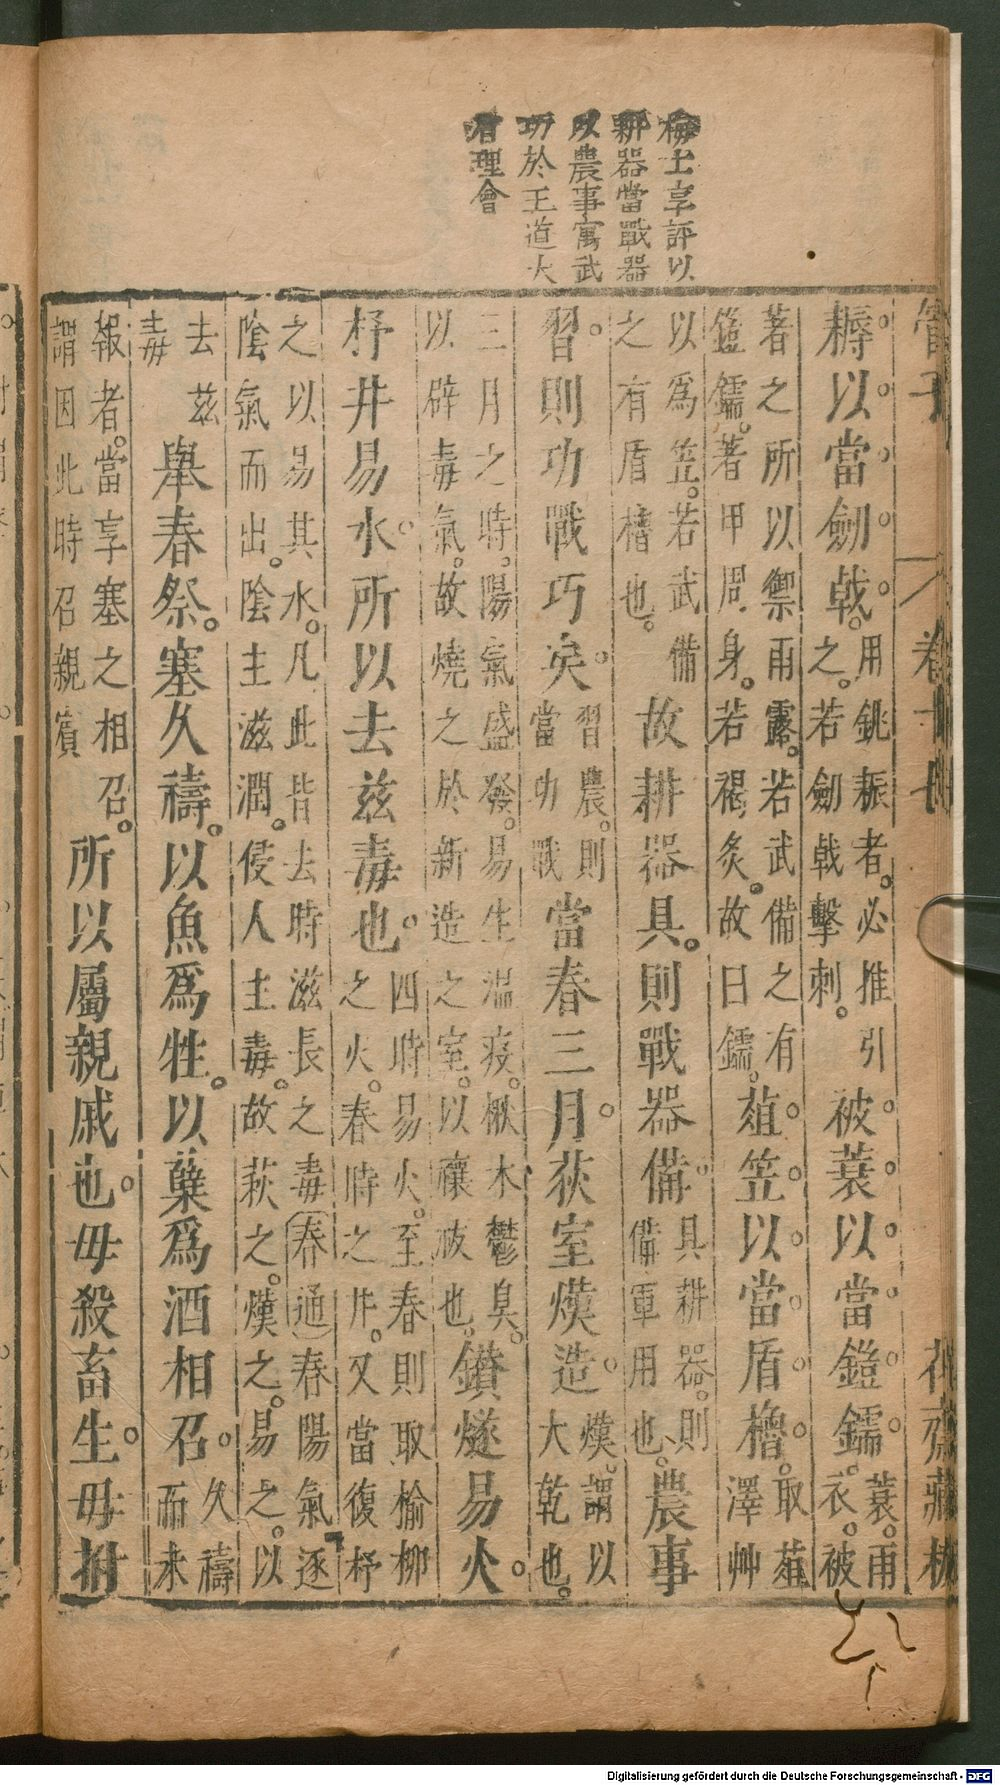 梅士享評以
耕器當戰器
以農事寓武
功於王道大
有理會
管子 卷十七 花齋藏板
耨以當劒戟。用銚耨者。必推引之。若劒戟擊刺。被蓑以當鎧鑐。蓑。雨衣。被
著之所以禦雨露。若武備之有鎧鑐。著甲周身。若褐炙。故曰鑐。葅笠。以當盾櫓。取葅澤艸
以爲笠。若武備之有盾櫓也。故耕器具。則戰器備。具耕器。則備軍用也。農事
習。則功戰巧矣。習農。則當功戰當春三月。荻室熯造。熯。謂以大乾也。
三月之時。陽氣盛發。易生温疫。楸木鬱臭。以辟毒氣。故燒之於新造之室。以禳祓也。鑚燧易火。
杼井易水。所以去兹毒也。四時易火。至春則取榆柳之火。春時之井。又當復杼
之以易其水。凡此皆去時滋長之毒春通春陽氣逐陰氣而出。陰主滋潤。侵人主毒。故萩之。熯之。易之。以
去兹毒舉春祭。塞久禱。以魚爲牲。以糱爲酒相召。久禱而来
報者。當享塞之相召。謂因此時召親賓所以屬親戚也。毋殺畜生。毋拊
Digitalisierung gefördert durch die Deutsche Forschungsgemeinschaft - DFG